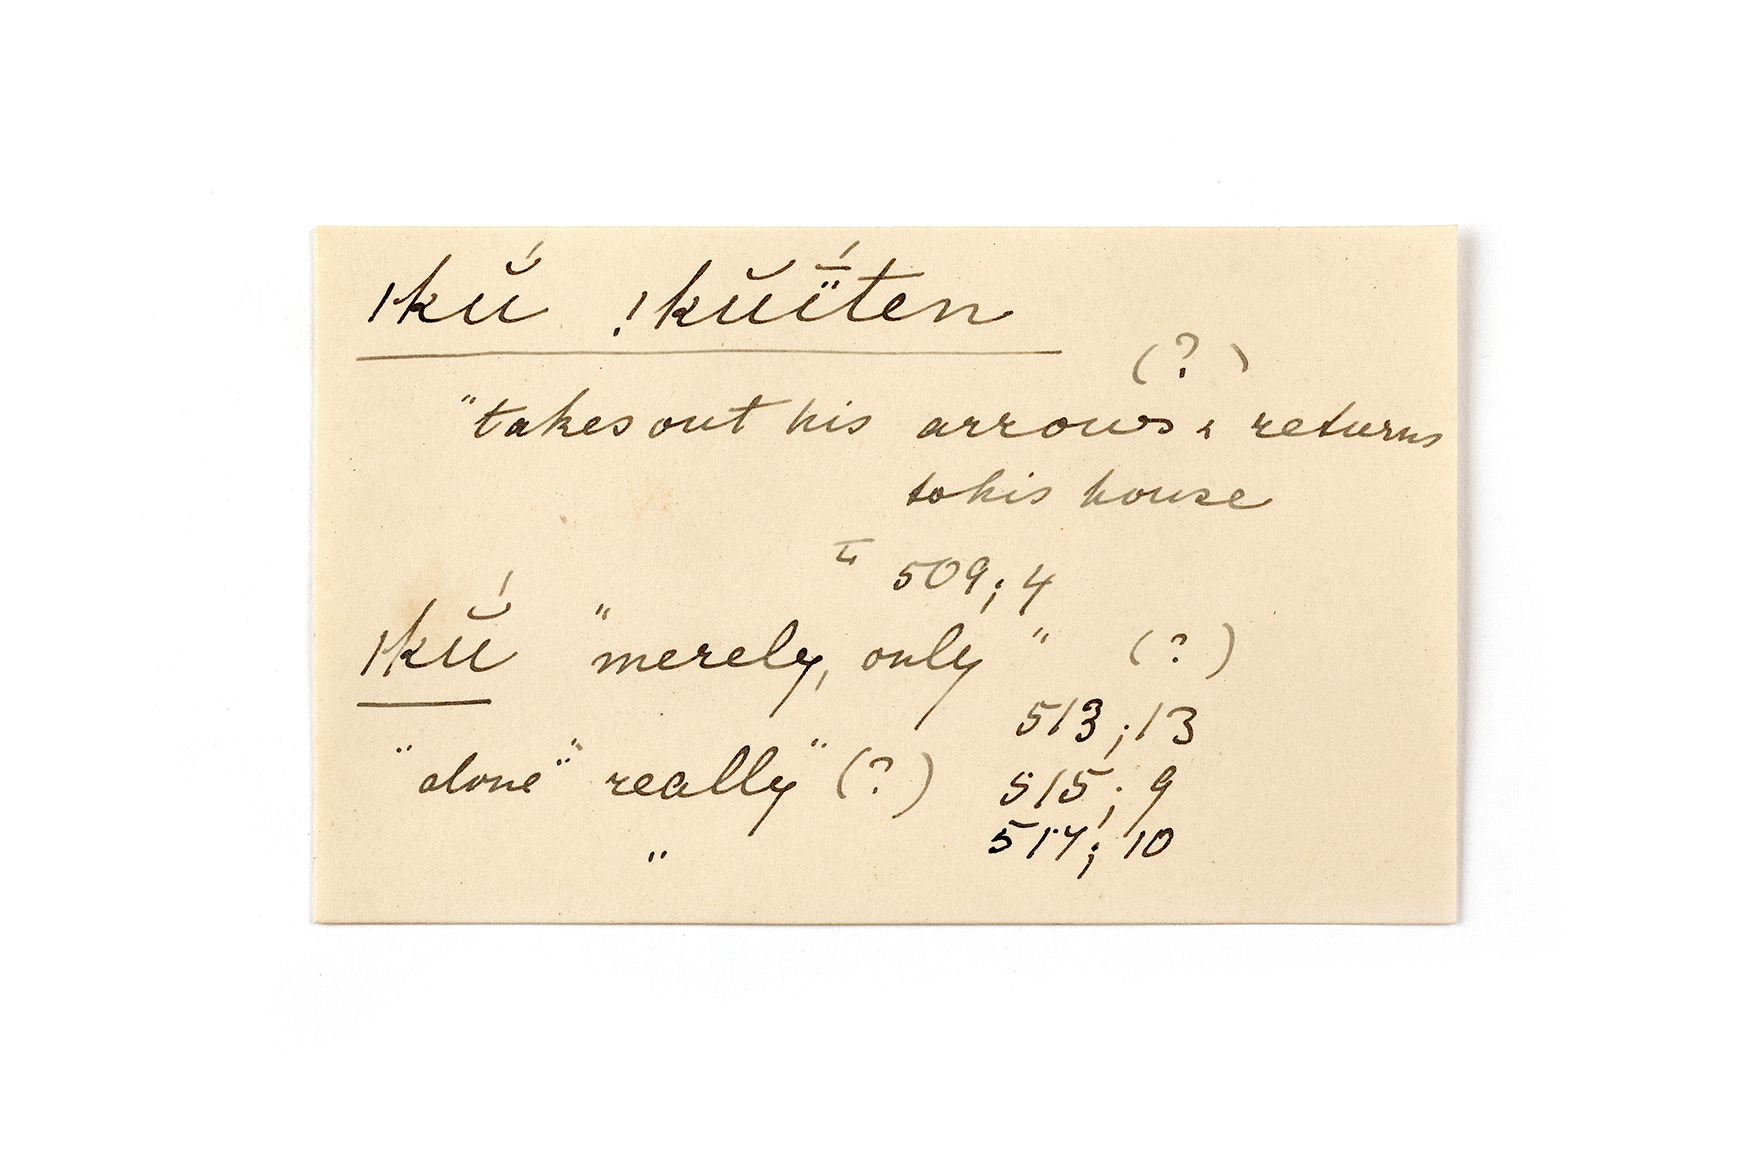 |kŭ́ !kŭī̈́ten
(?)
"takes out his arrows & returns
to his house
I 509; 4
|kŭ́ "merely, only" (?)
513; 13
"alone" "really" (?) 515; 9
" 517; 10